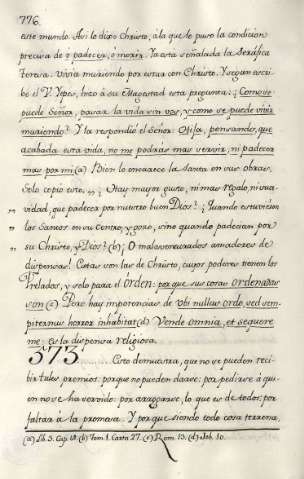 776
este mundo. Asi lo dixo Christo, à la que le puso la condicion
precisa de ò padecer, ò morir. Ya está señalada la Seráfica
Teresa. Vivia muriendo por estar con Christo. Y segun escri-
bió el V. Yepes, hizo à su Magestad esta pregunta: ¿Como se
puede Señor, pasar la vida sin vos, y como se puede vivir
muriendo? Y la respondió el Señor: Hija, pensando, que
acabada esta vida, no me podrás mas servir, ni padecer
mas por mi (a) Bien lo encarece la Santa en sus obras.
Solo copio este: ¿Hay mayor gusto, ni mas regalo, ni sua-
vidad, que padecer por nuestro buen Dios? ¿Quando estuvieron
los Santos en su Centro, y gozo, sino quando padecian por
su Christo, y Dios? (b) ¡O malaventurados amadores de
dispensas! Estas son las de Christo, cuyos poderes tienen los
Prelados, y solo para el Orden: por que sus cosas ordenadas
son (c) Pero hay impotencias de Ubi nullus ordo, sed sem-
piternus horror inhabitat (d) Vende omnia, et sequere
me: es la dispensa religiosa.
373 Esto demuestra, que no se pueden reci-
bir tales premios: porque no pueden darse: por pedirse à qui-
en no se ha servido: por arrogarse, lo que es de todos: por
faltar à la promesa. Y por que siendo todo cosa terrena,
(a) Lib. 3. Cap. 18. (b) Tom. 1. Carta 27. (c) Rom. 13. (d) Job. 10.